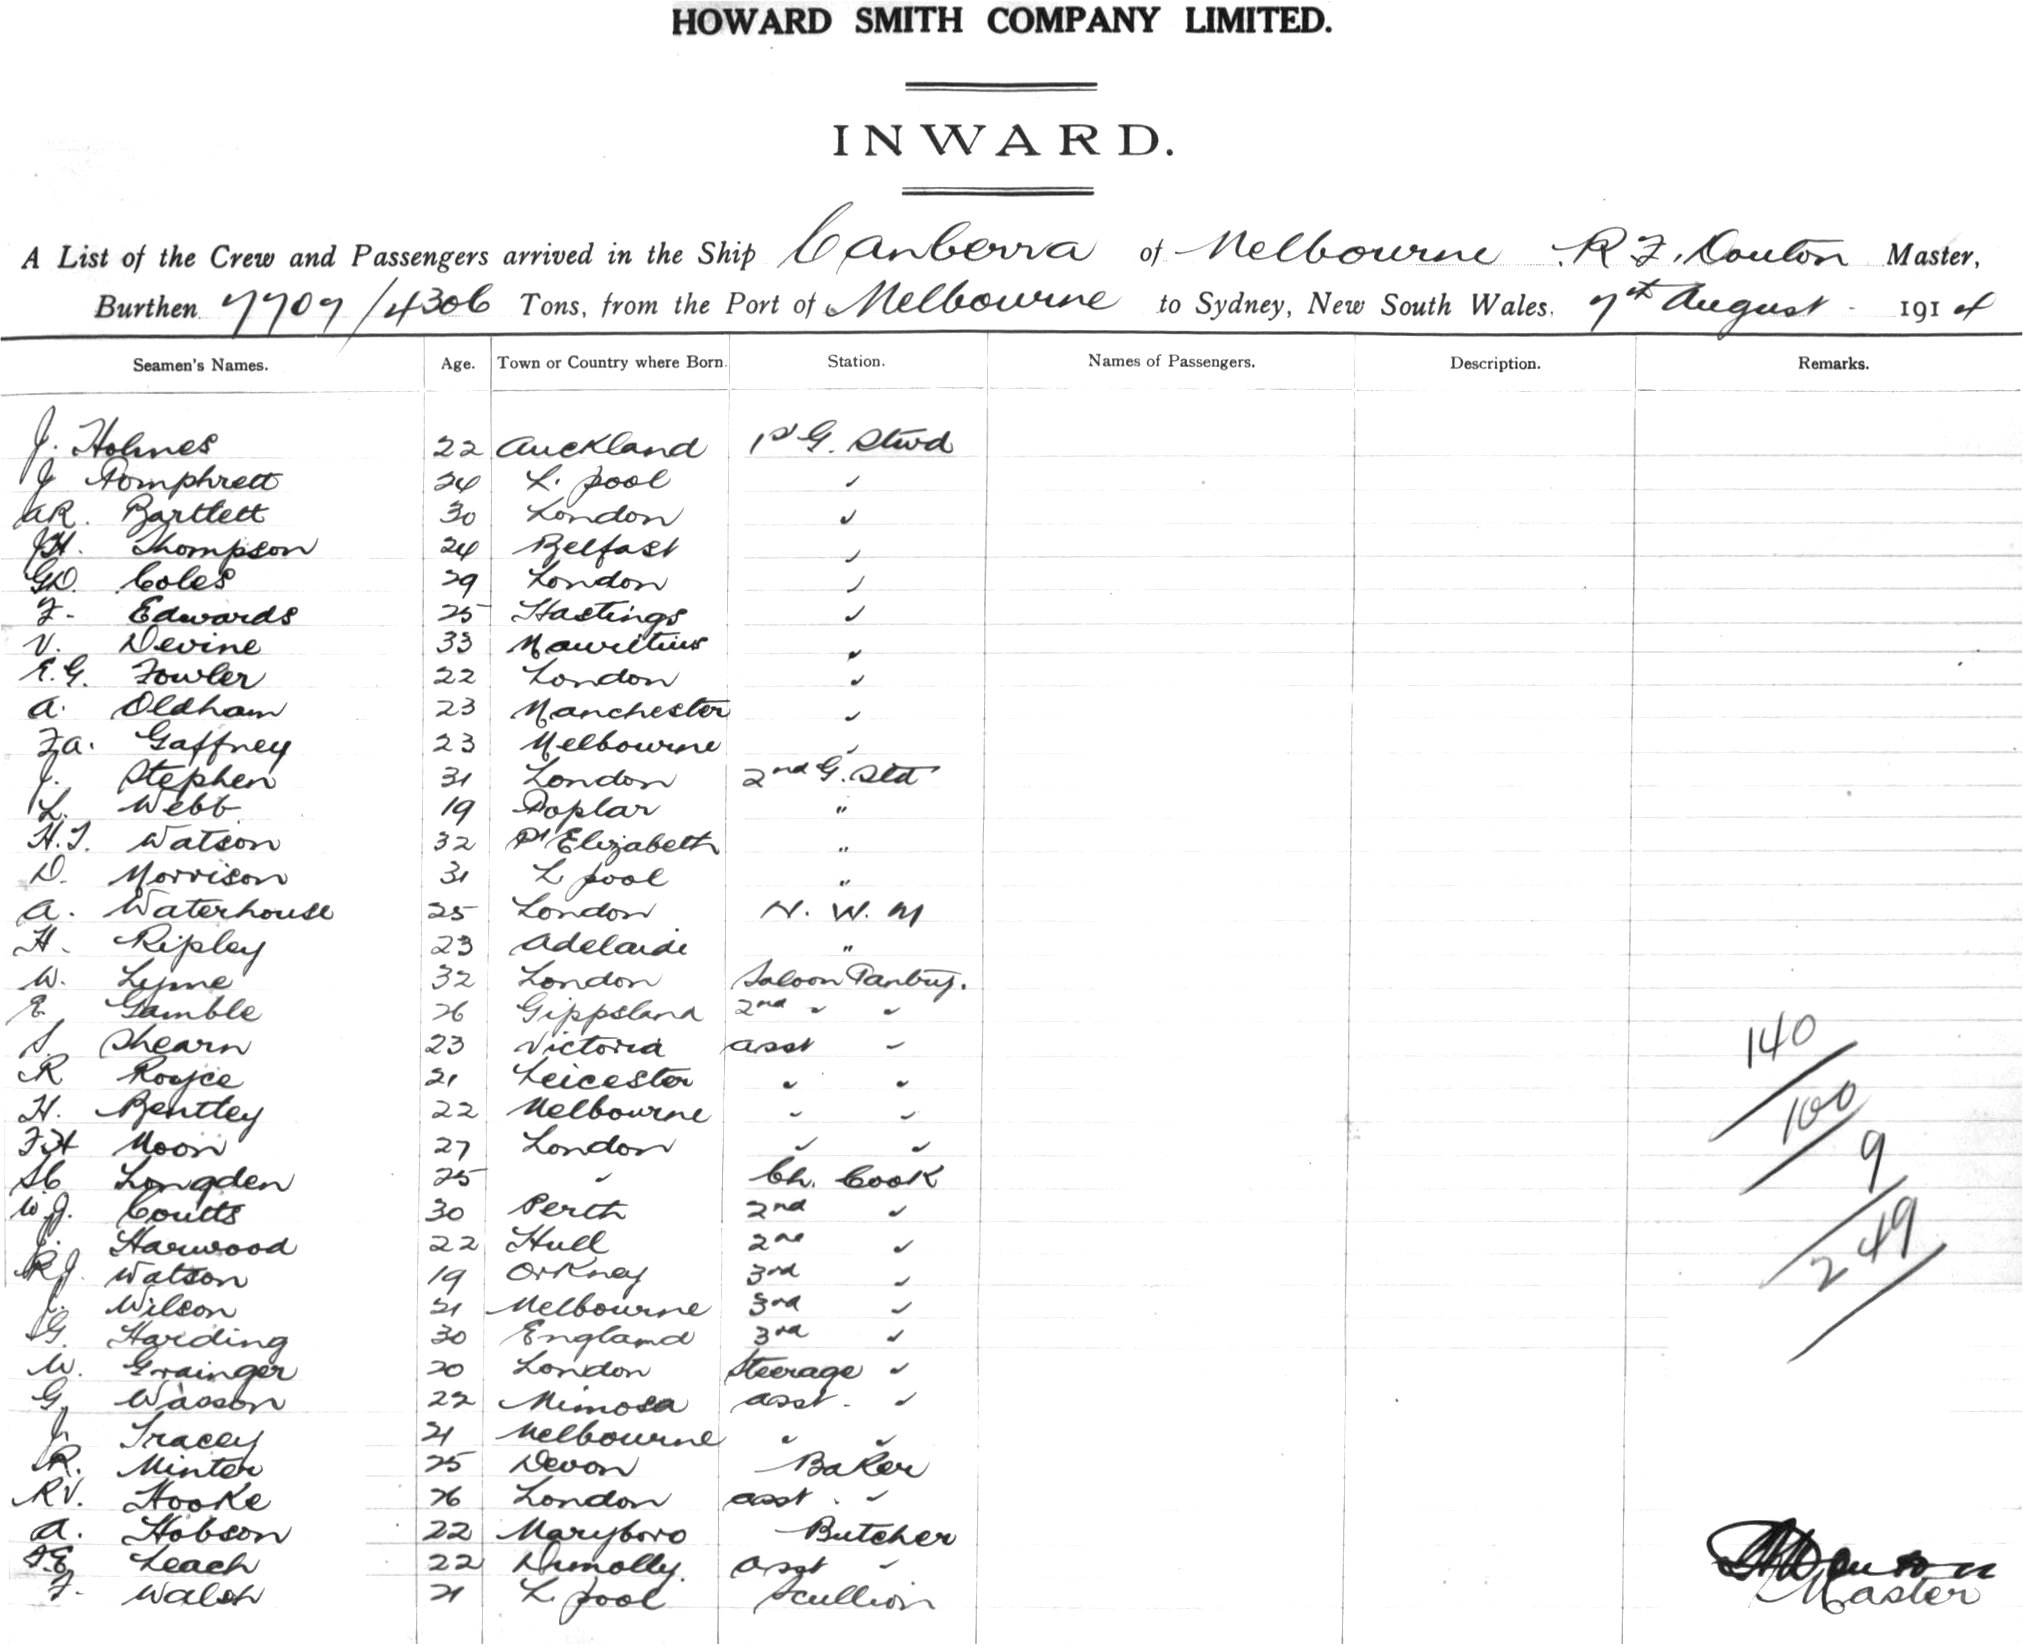 HOWARD SMITH COMPANY LIMITED.
INWARD.
A List of the Crew and Passengers arrived in the Ship Canberra of Melbourne R. F. Douton Master,
Burthen 7707/4306 Tons, from the Port of Melbourne to Sydney, New South Wales. 7th August 1914
Seamen's Names. Age. Town or Country where Born. Station. Names of Passengers. Description. Remarks.
J. Holmes 22 Auckland 1st G. Stwd
J Pomphrett 24 L. pool ✓
AR. Bartlett 30 London ✓
JH. Thompson 24 Belfast ✓
GD. Coles 29 London ✓
F. Edwards 25 Hastings ✓
V. Devine 33 Mauritius ✓
E.G. Fowler 22 London ✓
A. Oldham 23 Manchester ✓
FA. Gaffney 23 Melbourne ✓
J. Stephen 31 London 2nd G. Std
L. Webb 19 Poplar "
H.T. Watson 32 Pt Elizabeth "
D. Morrison 31 L pool "
A. Waterhouse 25 London N. W. M
H. Ripley 23 Adelaide "
W. Lyme 32 London Saloon Pantry.
E Gamble 26 Gippsland 2nd " "
S. Shearn 23 Victoria asst "
R Royce 21 Leicester " "
H. Bentley 22 Melbourne " "
FH Moon 27 London " "
SC Longden 25 " Ch. Cook
W.J. Coutts 30 Perth 2nd ✓
J. Harwood 22 Hull 2nd ✓
RJ. Watson 19 Orkney 3rd ✓
J. Wilson 21 Melbourne 3rd ✓
G. Harding 30 England 3rd ✓
W. Grainger 20 London Steerage ✓
G. Wasson 22 Mimosa asst. ✓
J. Tracey 21 Melbourne " "
R. Minter 25 Devon Baker
RV. Hooke 26 London asst. "
A. Hobson 22 Maryboro Butcher
Leach 22 Dunolly. asst "
F. Walsh 21 L pool Scullion
140
100
9
249
Douton
Master